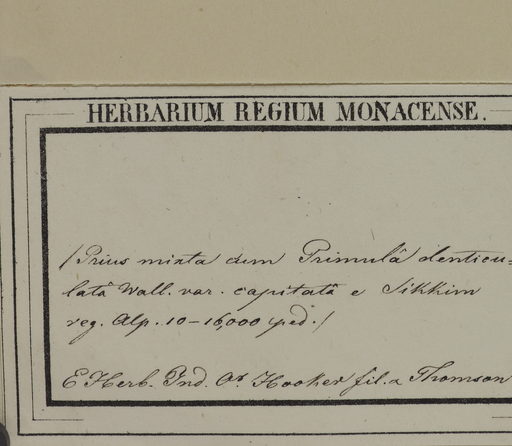 HERBARIUM REGIUM MONACENSE.
/Prius mixta cum Primulâ denticu=
latâ Wall. var. capitatâ e Sikkim
reg. Alp. 10-16,000 ped./
E Herb. Ind. Or. Hooker fil. & Thomson